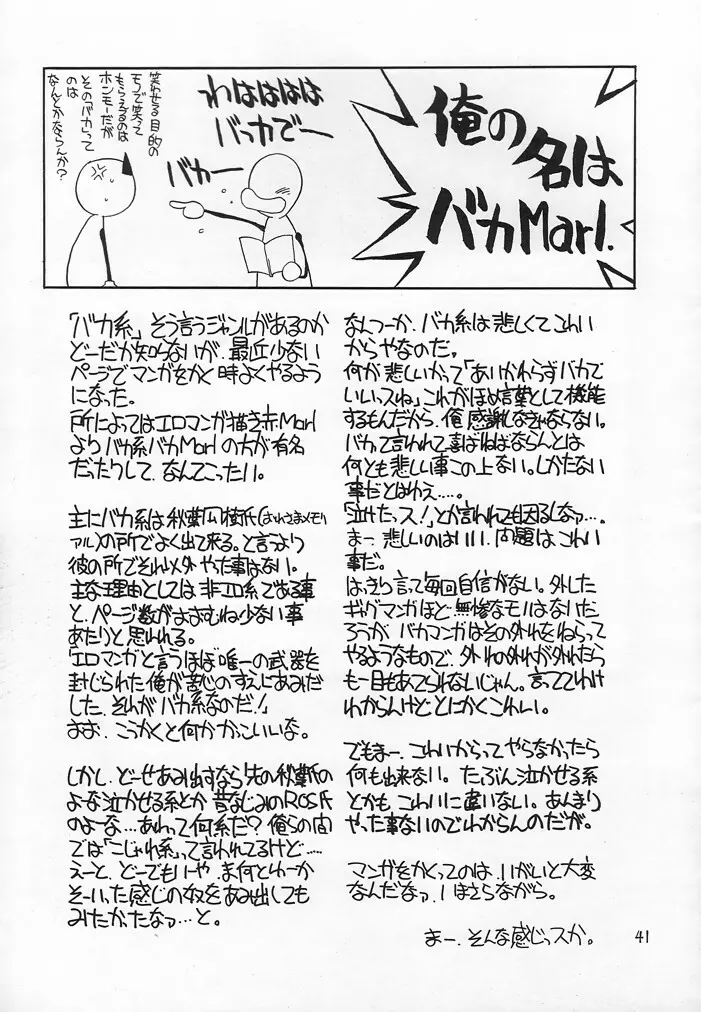 俺の
名は
バカMarl.
わはははは
バッカでー
バカー
笑わせる目的の
モノで笑って
もらえるのは
ホンモーだが
その「バカ」って
のは
なんとかならんか?
「バカ系」そう言うジャンルがあるのか
どーだか知らないが、最近少ない
ページでマンガをかく時よくやるよう
になった。
所によってはエロマンガ描き赤Marl
よりバカ系バカMarlの方が有名
だったりして、なんてこったい。
主にバカ系は秋葉凪樹氏(
アル)の所でよく出て来る。と言うより
彼の所でそれ以外やった事はない。
主な理由としては非エロ系である事
と、ページ数がおおむね少ない事
あたりと思われる。
「エロマンガと言うほぼ唯一の武器を
封じられた俺が苦心のすえにあみだ
した、それがバカ系なのだ!」
おお、こうかくと何かかっこいいな。
しかし、どーせあみ出すなら先の秋葉氏の
よーな泣かせる系とか昔なじみのROS氏
のよーな…あれって何系だ?俺らの間
では「こじゃれ系」って言われてるけど……
えーと、どーでもいいや、ま何とゆーか
そーいった感じの奴をあみ出しても
みたかったなァ…と。
なんつーか、バカ系は悲しくてこわい
からやなのだ。
何が悲しいかって「あいかわらずバカで
いいっスね」これがほめ言葉として機能
するもんだから、俺感謝しなきゃならない。
バカって言われて喜ばねばならんとは
何とも悲しい事この上ない。しかたない
事だとはゆえ….。
「泣けたっス!」とか言われても困るしなァ…。
まー、悲しいのはいい、問題はこわい
事だ。
はっきり言って毎回自信がない。外した
ギャグマンガほど無惨なモノはないだ
ろうが、バカマンガはその外れをねらって
やるようなもので、外れの外れが外れたら
も一目もあてられないじゃん。言っててわけ
わからんけどとにかくこわい。
でもまー、こわいからってやらなかったら
何も出来ない。たぶん泣かせる系
とかも、こわいに違いない。あんまり
やった事ないのでわからんのだが。
マンガをかくってのは、いがいと大変
なんだなァ、いまさらながら。
まー、そんな感じっスか。
41